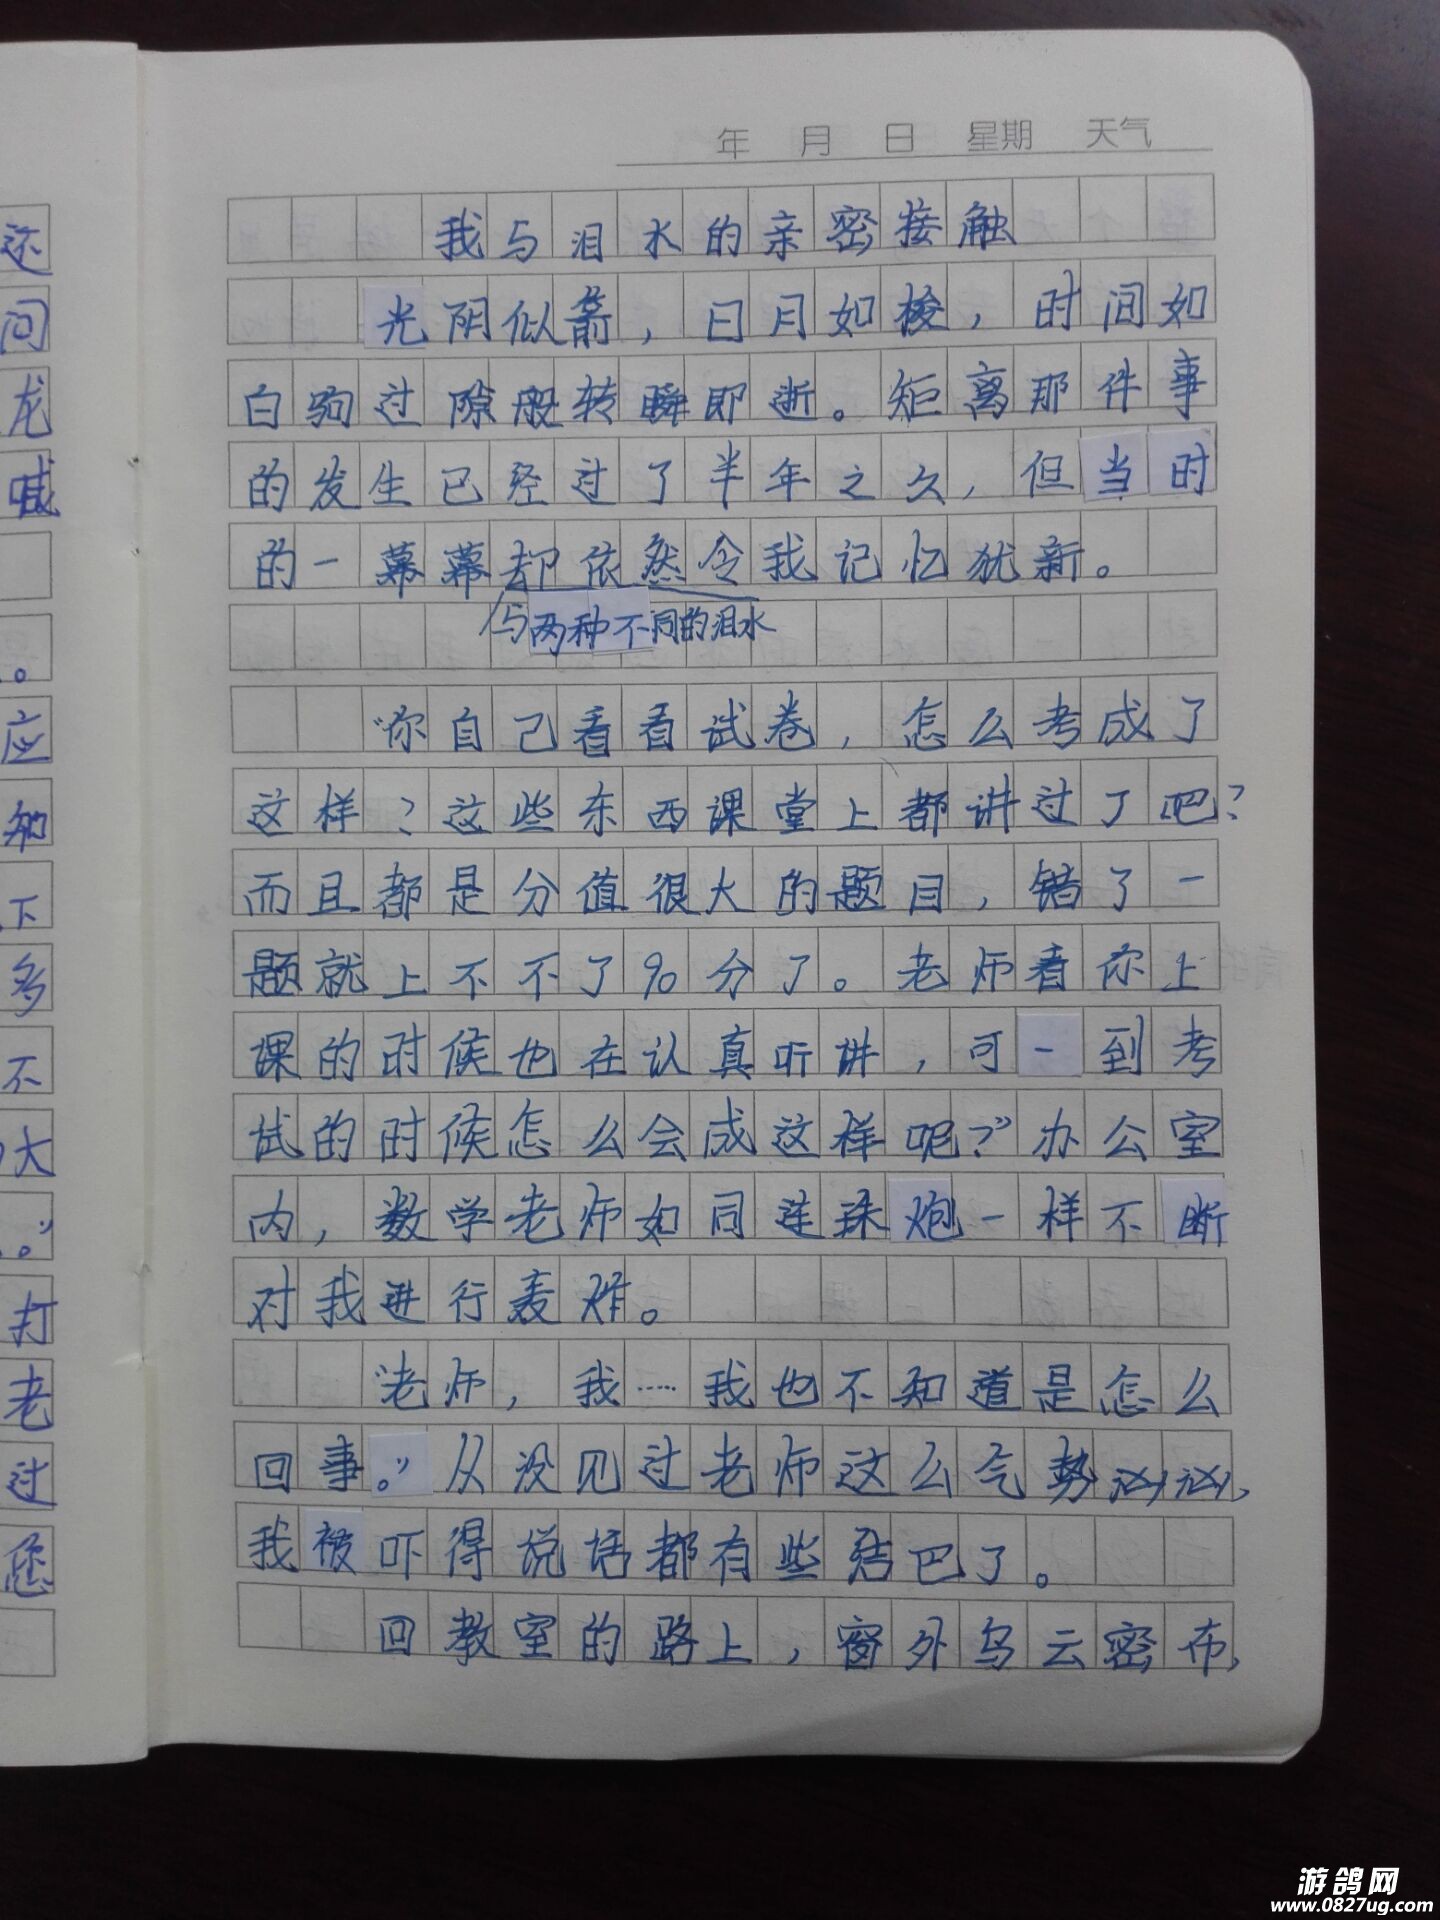 年 月 日 星期 天气
我与泪水的亲密接触
光阴似箭，日月如梭，时间如
白驹过隙般转瞬即逝。矩离那件事
的发生已经过了半年之久，但当时
的一幕幕却依然令我记忆犹新。
与两种不同的泪水
“你自己看看试卷，怎么考成了
这样？这些东西课堂上都讲过了吧？
而且都是分值很大的题目，错了一
题就上不不了90分了。老师看你上
课的时候也在认真听讲，可一到考
试的时候怎么会成这样呢？”办公室
内，数学老师如同连珠炮一样不断
对我进行轰炸。
“老师，我……我也不知道是怎么
回事。”从没见过老师这么气势汹汹，
我被吓得说话都有些结巴了。
回教室的路上，窗外乌云密布，
还
问
龙
喊
。
应
知
下
多
不
大
。”
打
老
过
您
游鸽网
www.0827ug.com